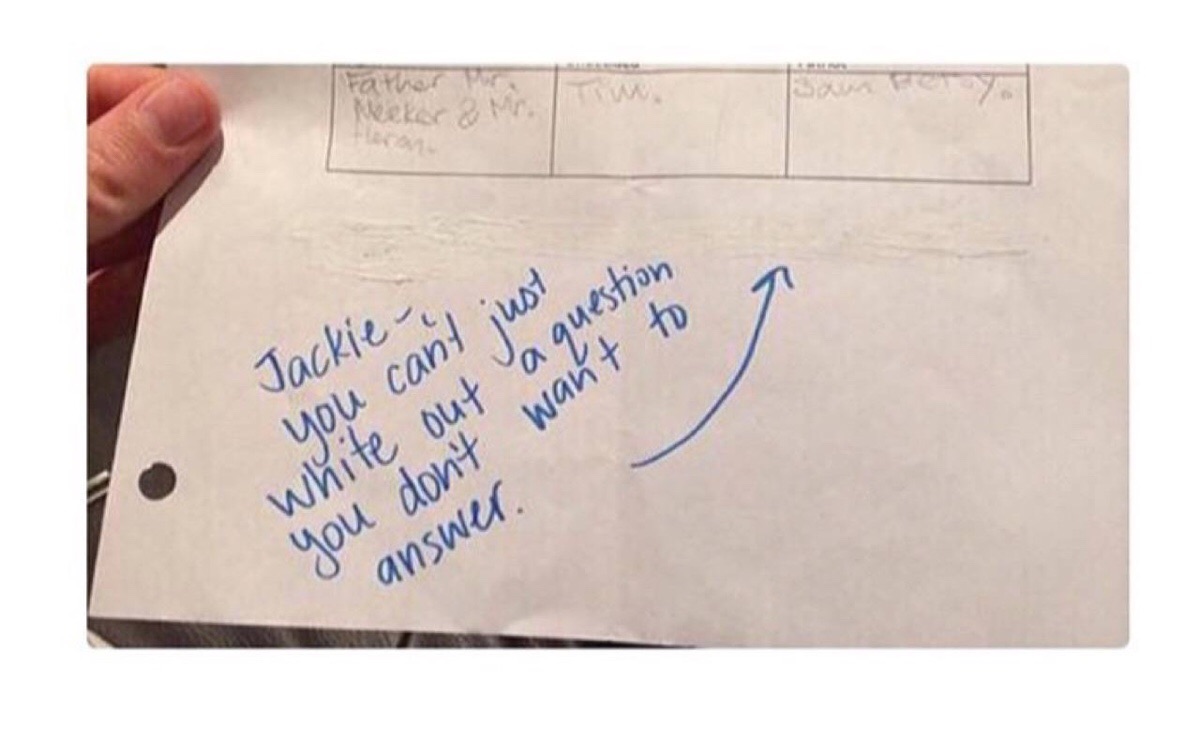 Father Mr. Tim. Sam Betsy.
Meeker & Mr.
Heron.
Jackie -
you can't just
white out a question
you don't want to
answer.